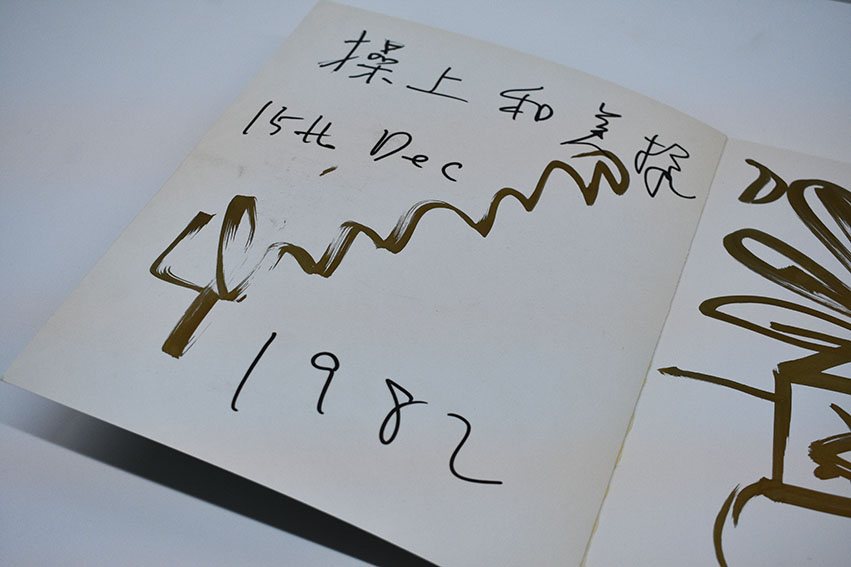 操上和美様
15th Dec
1982